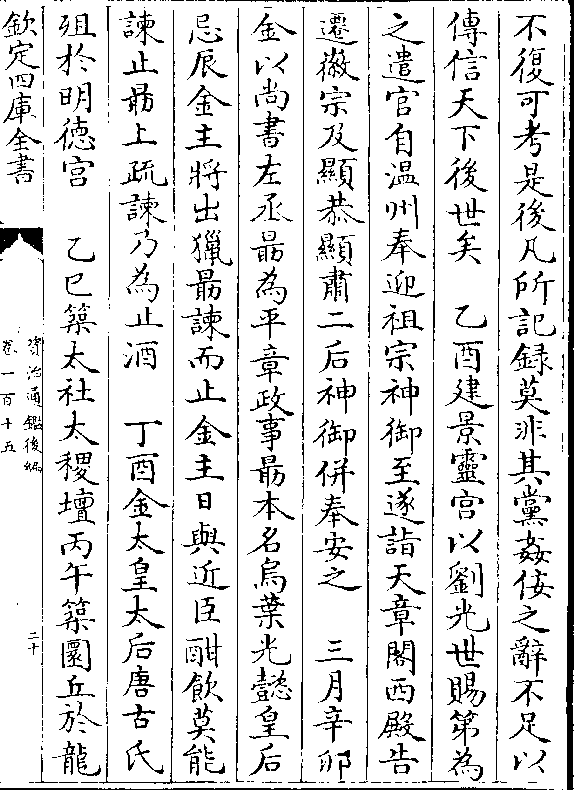 不復可考是後凡所記録莫非其黨姦佞之辭不足以
傳信天下後世矣　乙酉建景靈宫以劉光世賜第為
之遣官自温州奉迎祖宗神御至遂詣天章閣西殿告
遷徽宗及顯恭顯肅二后神御併奉安之　三月辛卯
金以尚書左丞勗為平章政事勗本名烏葉光懿皇后
忌辰金主將出獵勗諫而止金主日與近臣酣飲莫能
諫止勗上疏諫乃為止酒　丁酉金太皇太后唐古氏
殂於明徳宫　乙巳築太社太稷壇丙午築圜丘於龍
欽定四庫全書
資治通鑑後編
卷一百十五
二十